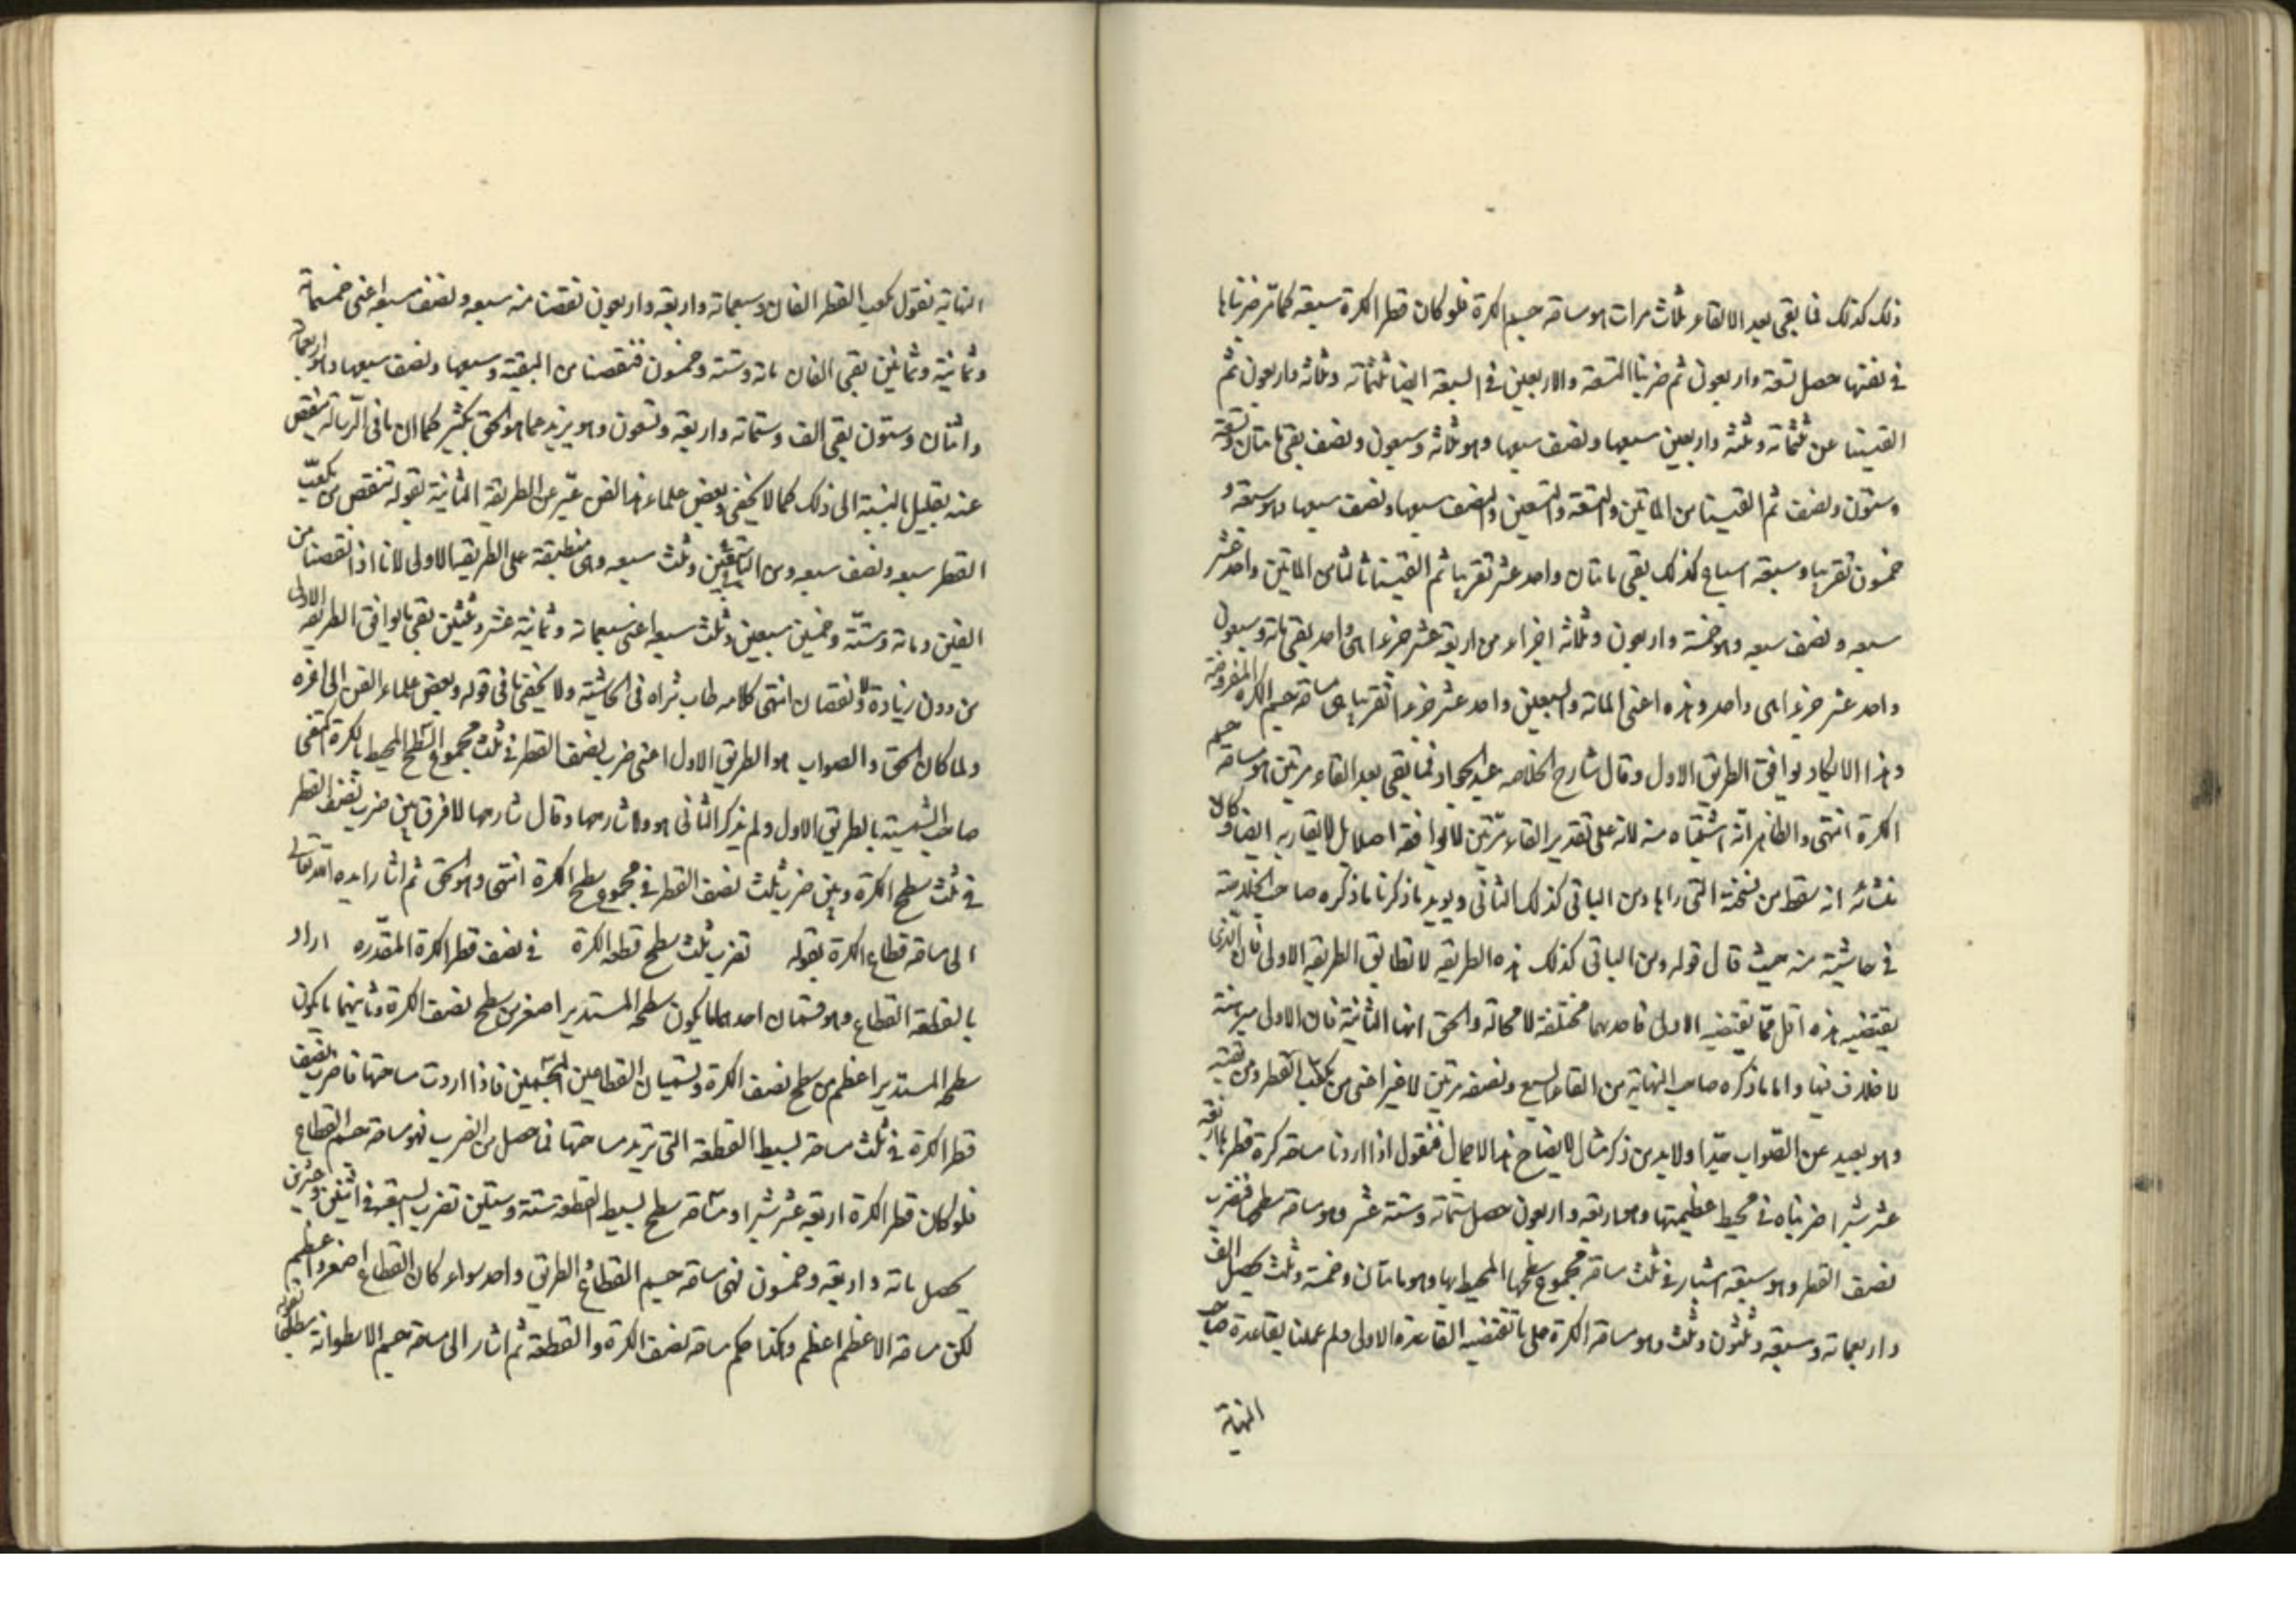 ذلك كذلك فما بقى بعد الالقاء ثلاث مرات هو مساحة جسم الكرة فلو كان قطر الكرة سبعة كما مر ضربناها
فى نفسها حصل تسعة واربعون ثم ضربنا التسعة والاربعين فى السبعة ايضا ثلثمائة وثلاثة واربعون ثم
القينا عن ثلثمائة وثلثة واربعين سبعها ونصف سبعها وهو ثلاثة وسبعون ونصف بقى مائتان وتسعة
وستون ونصف ثم القينا من المائتين والتسعة والستين والنصف سبعها ونصف سبعها وهو سبعة و
خمسون تقريبا وسبعة اسباع كذلك بقى مائتان واحد عشر تقريبا ثم القينا ثالثا من المائتين واحد عشر
سبعه ونصف سبعه وهو خمسة واربعون وثلاثة اجزاء من اربعة عشر جزءا من واحد بقى مائة وسبعون
واحد عشر جزءا من واحد وهذه اعنى المائة والسبعين واحد عشر جزءا تقريبا هى مساحة جسم الكرة المفروضة
وهذا لا يكاد يوافق الطريق الاول وقال شارح الخلاصه عبد الجواد فما بقى بعد القاء مرتين هو مساحة جسم
الكرة انتهى والظاهر انه اشتباه منه لانه على تقدير القاء مرتين لا يوافقه اصلا بل لا يقاربه ايضا وكان
منشائه انه سقط من نسخته التى راها ومن الباقى كذلك الثانى ويويد ما ذكرنا ما ذكره صاحب الخلاصة
فى حاشيته منه حيث قال قوله ومن الباقى كذلك هذه الطريقه لا تطابق الطريقه الاولى فان الذى
يقتضيه هذه اقل مما يقتضيه الاولى فاحدهما مختلفة لا محالة والحق انها الثانية فان الاولى مبرهنة
لا خلاف فيها واما ما ذكره صاحب النهاية من القاء السبع ونصفه مرتين لا غير اعنى من مكعب القطر ومن بقيته
وهو بعيد عن الصواب جدا ولا بد من ذكر مثال لايضاح هذا الاجمال فنقول اذا اردنا مساحة كرة قطرها اربعة
عشر شبرا ضربناه فى محيط عظيمتها وهو اربعة واربعون حصل ستمائة وستة عشر وهو مساحة سطحها فنضرب
نصف القطر وهو سبعة اشبار فى ثلث مساحة مجموع سطحها المحيط بها وهو مائتان وخمسة وثلث يحصل الف
واربعمائة وسبعة وثلثون وثلث وهو مساحة الكرة على ما تقتضيه القاعدة الاولى ولم عملنا بقاعدة صاحب
النهاية
النهاية نقول مكعب القطر الفان وسبعمائة واربعة واربعون نقصنا منه سبعه ونصف سبعه اعنى خمسمائة
وثمانية وثمانين بقى الفان مائة وستة وخمسون فنقصنا من البقية وسبعها ونصف سبعها وهو اربعمائة
واثنان وستون بقى الف وستمائة واربعة وتسعون وهو يزيد عما هو الحق بكثير كما ان ما فى الرسالة ينقص
عنه بقليل بالنسبة الى ذلك كما لا يخفى وبعض علماء هذا الفن عبر عن الطريقة الثانية بقوله تنقص من مكعب
القطر سبعه ونصف سبعه ومن الباقى سبعين وثلث سبعه وهى منطبقة على الطريقه الاولى لانا اذا نقصنا من
الفين ومائة وستة وخمسين سبعين وثلث سبعه اعنى سبعمائة وثمانية عشر وثلثين بقى ما يوافق الطريقه الاولى
من دون زيادة ولا نقصان انتهى كلامه طاب ثراه فى الحاشية ولا يخفى ما فى قوله وبعض علماء الفن الى اخره
ولما كان الحق والصواب هو الطريق الاول اعنى ضرب نصف القطر فى ثلث مجموع السطح المحيط بالكرة اكتفى
صاحب الشمسية بالطريق الاول ولم يذكر الثانى هو ولا شارحها وقال شارحها لا فرق بين ضرب نصف القطر
فى ثلث سطح الكرة وبين ضرب ثلث نصف القطر فى مجموع سطح الكرة انتهى وهو الحق ثم اشار ايده الله تعالى
الى مساحة قطاع الكرة بقوله تضرب ثلث سطح قطعة الكرة فى نصف قطر الكرة المقدره اراد
بالقطعة القطاع وهو قسمان احدهما ما يكون سطحه المستدير اصغر من سطح نصف الكرة وثانيهما ما يكون
سطحه المستدير اعظم من سطح نصف الكرة ويسميان القطاعين المجسمين فاذا اردت مساحتها فاضرب نصف
قطر الكرة فى ثلث مساحة بسيط القطعة التى تريد مساحتها فما حصل من الضرب فهو مساحة جسم القطاع
فلو كان قطر الكرة اربعة عشر شبرا ومساحة سطح بسيط القطعة ستة وستين تضرب السبعة فى اثنين وعشرين
يحصل مائة واربعة وخمسون فهى مساحة جسم القطاع والطريق واحد سواء كان القطاع اصغر او اعظم
لكن مساحة الاعظم اعظم وهكذا حكم مساحة نصف الكرة والقطعة ثم اشار الى مساحة جسم الاسطوانة مطلقا بقوله